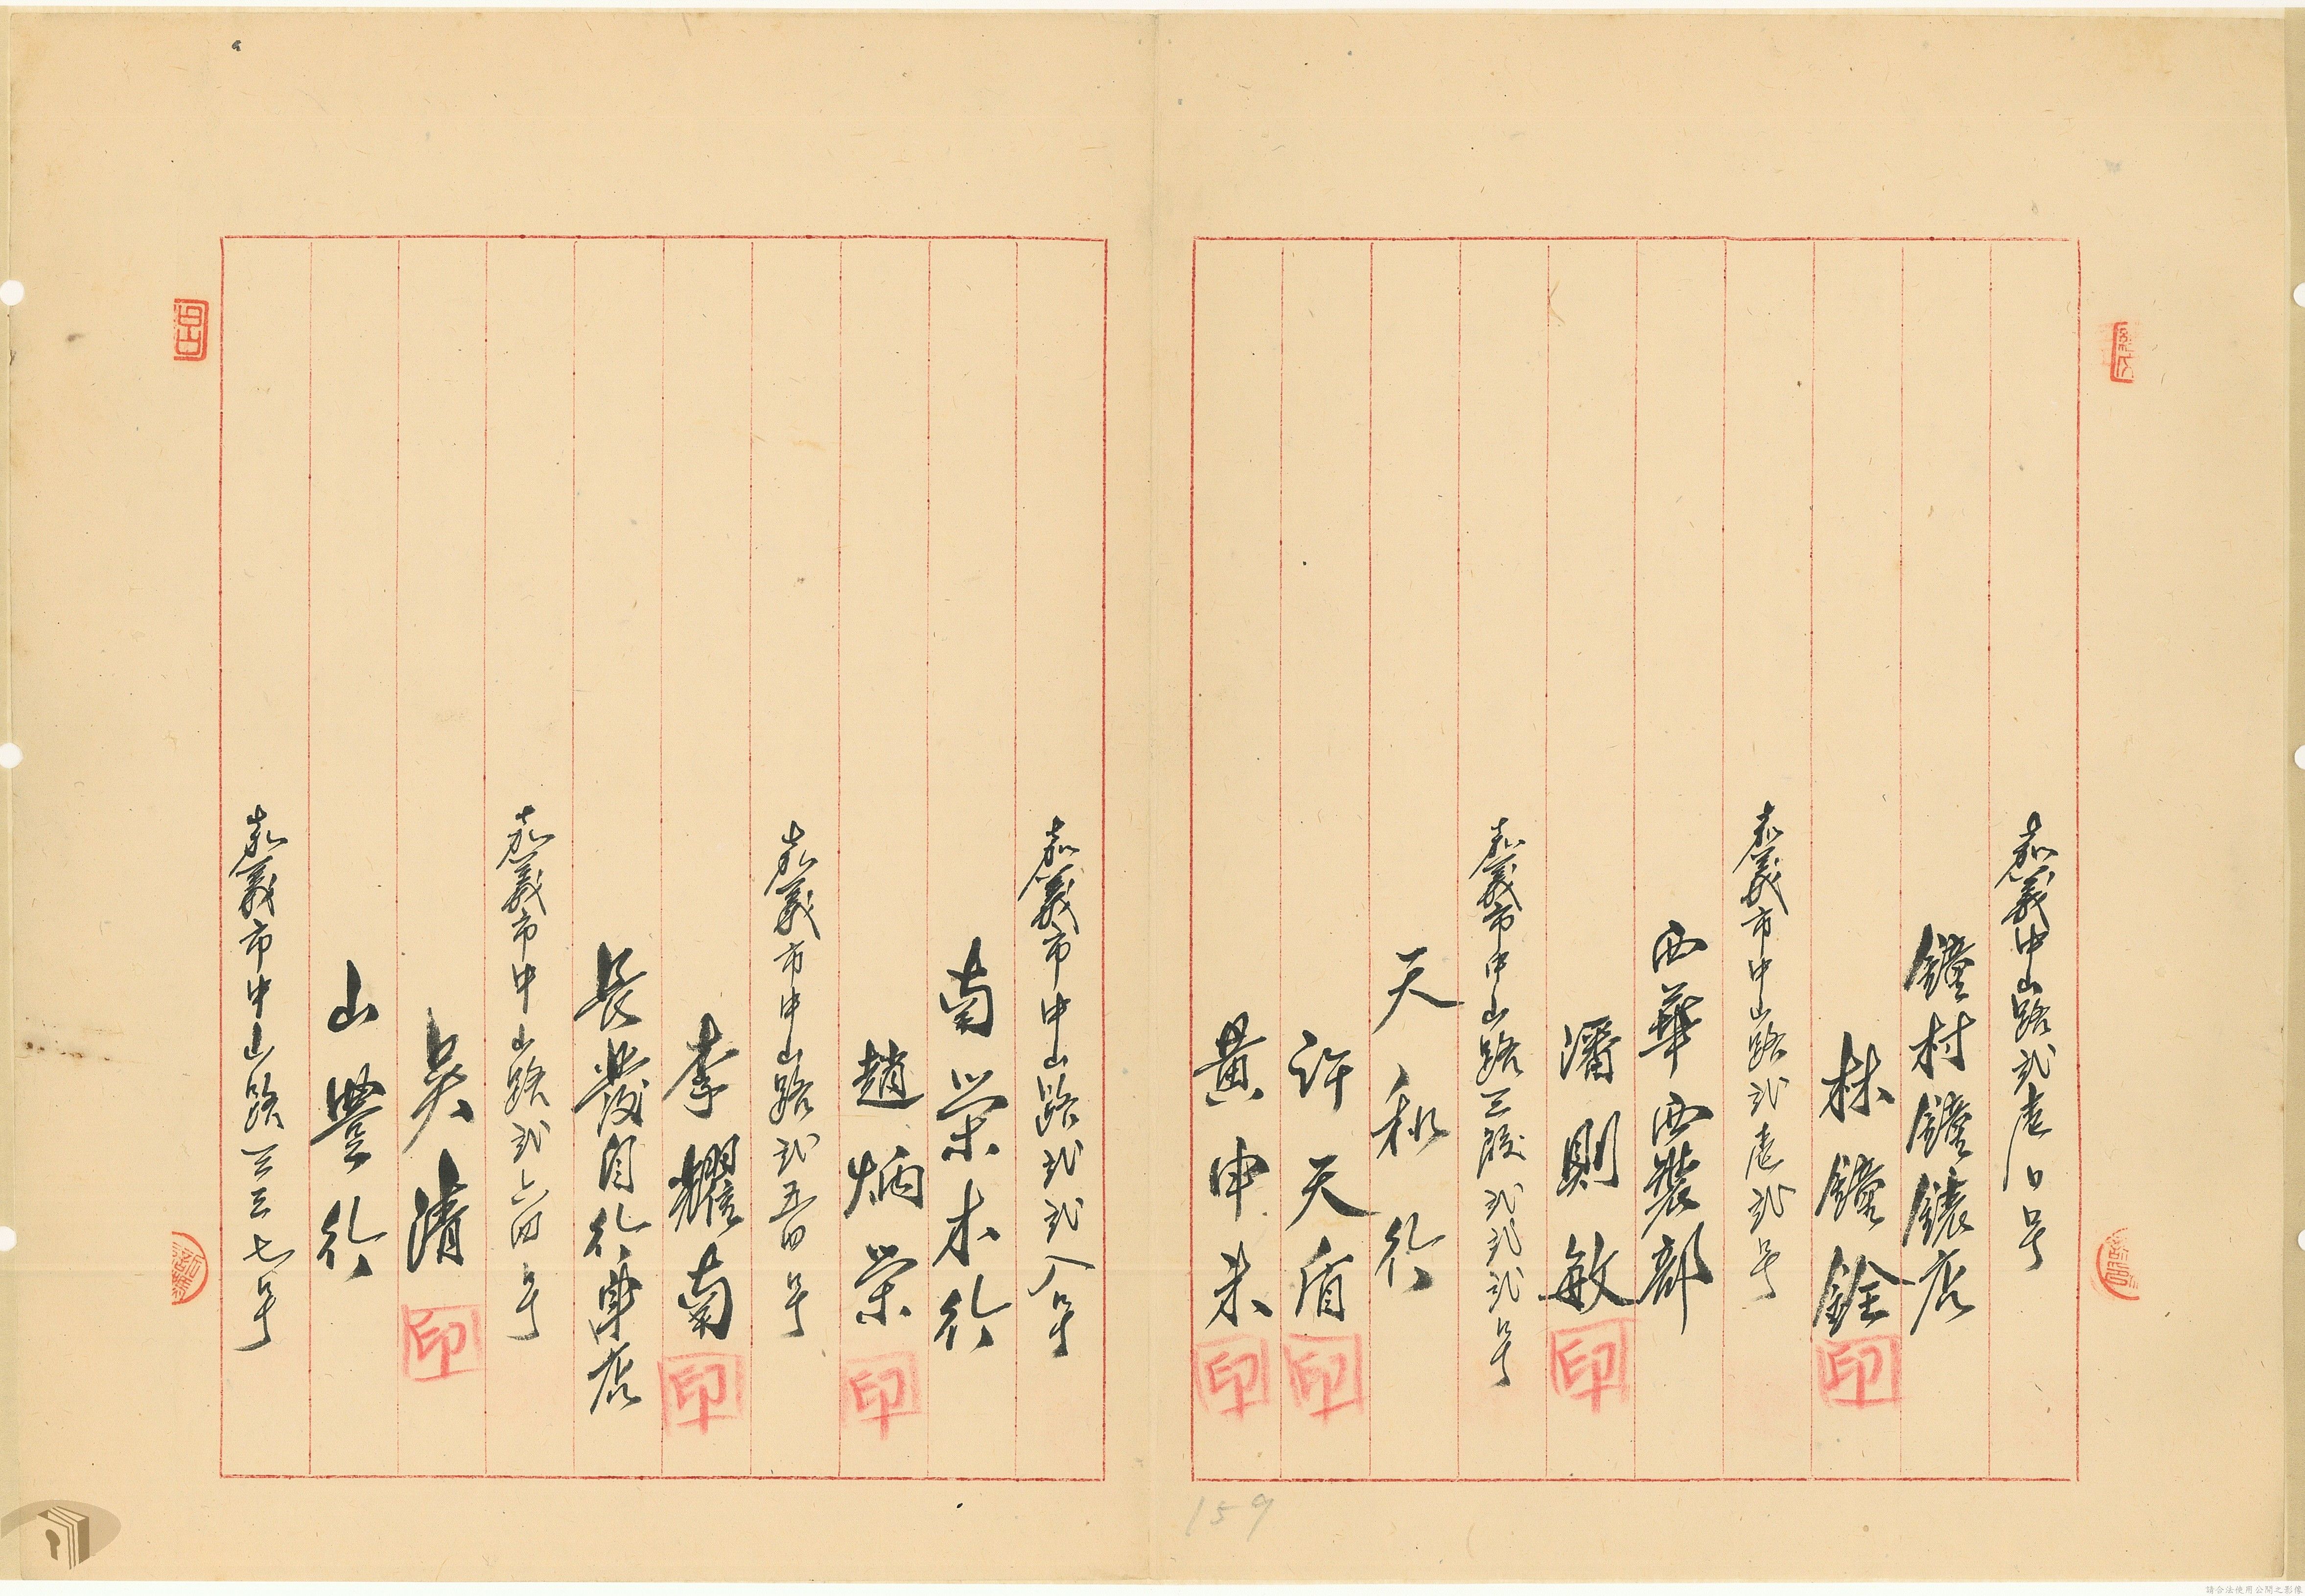 嘉義中山路弍壱〇号
鐘村鐘錶店
林鐘銓 印
嘉義市中山路弍壱弍号
西華西裝部
潘則敏 印
嘉義市中山路三段弍弍弍号
天和行
許天盾 印
黃申未 印
嘉義市中山路弍弍八号
南榮木行
趙炳榮 印
嘉義市中山路弍五四号
李耀南 印
長發自行車店
嘉義市中山路弍六四号
吳清 印
山豐行
嘉義市中山路三三七号
159
請合法使用公開之影像